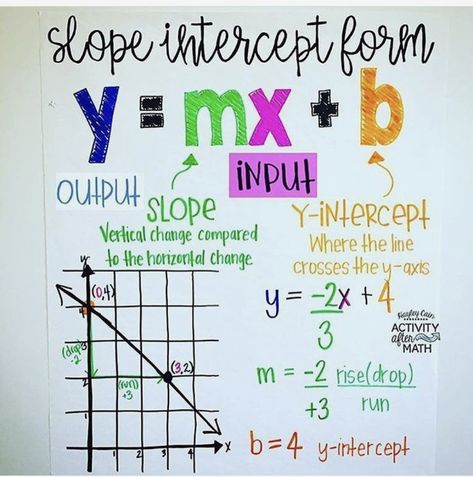 slope intercept form
y = mx + b
OUTPUT
INPUT
SLOPE
Vertical change compared
to the horizontal change
Y-INTERCEPT
Where the line
crosses the y-axis
y
(0,4)
4
3
2
1
(drop)
-2
(run)
+3
(3,2)
x
1
2
3
4
y = -2x + 4
3
Kayley Cain
ACTIVITY
after
MATH
m = -2 rise(drop)
+3 run
b = 4 y-intercept